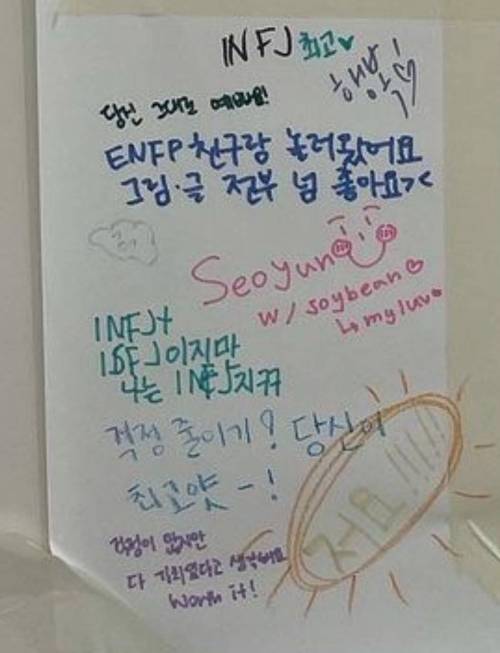 INFJ 최고♥
행복♡
당신 그대로 예뻐요!
ENFP 친구랑 놀러왔어요
그림·글 전부 넘 좋아요><
Seoyun
w/ soybean♡
↳ my luv♥
INFJ
ISFJ이지만
나는 INFJ지뀨
걱정 줄이기! 당신이
최고얏-!
저요!!!!!
걱정이 많지만
다 기회였다고 생각해요
Worth it!